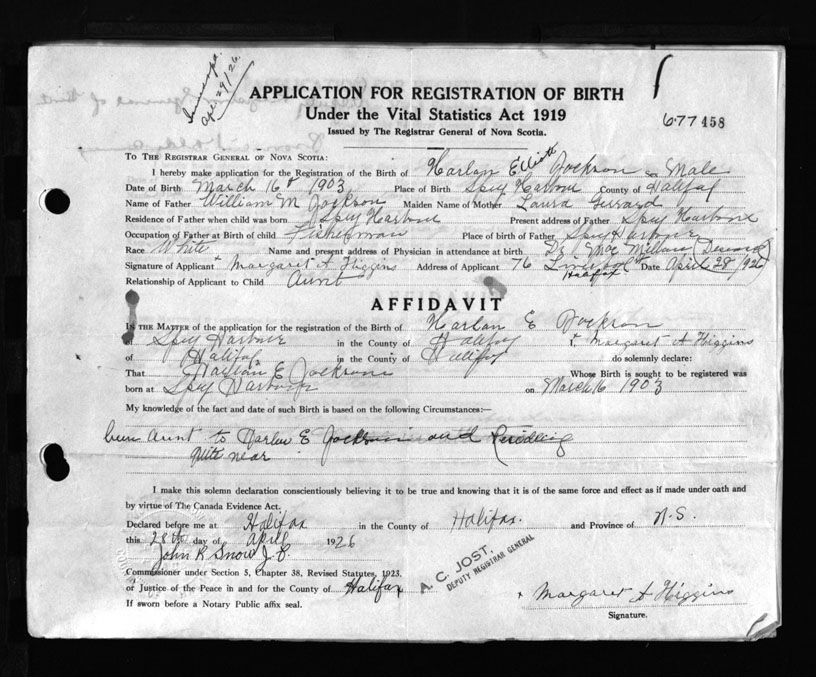 Apr 29/26
APPLICATION FOR REGISTRATION OF BIRTH
Under the Vital Statistics Act 1919
Issued by The Registrar General of Nova Scotia.
677458
TO THE REGISTRAR GENERAL OF NOVA SCOTIA:
I hereby make application for the Registration of the Birth of Harlan Elliott Jackson Sex Male
Date of Birth March 16th 1903 Place of Birth Spry Harbour County of Halifax
Name of Father William M Jackson Maiden Name of Mother Laura
Residence of Father when child was born Spry Harbour Present address of Father Spry Harbour
Occupation of Father at Birth of child Fisherman Place of birth of Father Spry Harbour
Race White Name and present address of Physician in attendance at birth Dr MacMillan (Deceased)
Signature of Applicant Margaret A Higgins Address of Applicant 76 Liverpool St Halifax Date April 28/1926
Relationship of Applicant to Child Aunt
AFFIDAVIT
IN THE MATTER of the application for the registration of the Birth of Harlan E Jackson
of Spry Harbour in the County of Halifax I, Margaret A Higgins
of Halifax in the County of Halifax do solemnly declare:
That Harlan E Jackson Whose Birth is sought to be registered was
born at Spry Harbour on March 16 1903
My knowledge of the fact and date of such Birth is based on the following Circumstances:—
being Aunt to Harlan E Jackson and residing
quite near
I make this solemn declaration conscientiously believing it to be true and knowing that it is of the same force and effect as if made under oath and
by virtue of The Canada Evidence Act.
Declared before me at Halifax in the County of Halifax and Province of N.S.
this 28th day of April 1926
John R Snow J.P.
Commissioner under Section 5, Chapter 38, Revised Statutes, 1923.
or Justice of the Peace in and for the County of Halifax
If sworn before a Notary Public affix seal.
A. C. JOST.
DEPUTY REGISTRAR GENERAL
x Margaret A Higgins
Signature.